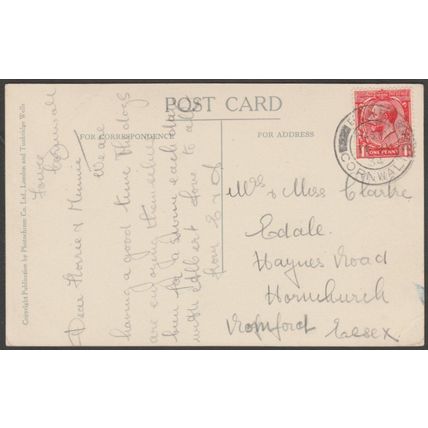 POST CARD
FOR CORRESPONDENCE
FOR ADDRESS
Copyright Publication by Photochrom Co. Ltd., London and Tunbridge Wells
Cornwall
Dear Florrie & Minnie
We are
having a good time The dogs
are enjoying themselves
been for a swim each day
with Albert love to all
from
ONE PENNY
CORNWALL
& Miss Clarke
Edale.
Haynes Road
Hornchurch
Romford Essex.